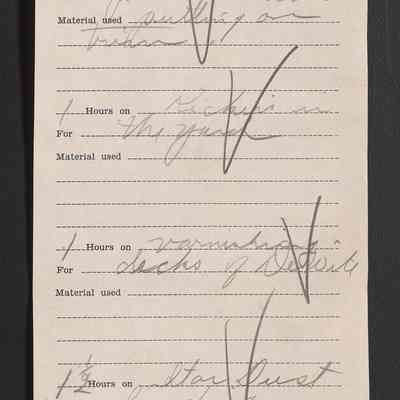 Material used putting on
1 Hours on
For the yard
Material used
1 Hours on varnishing
For decks of Detroit
Material used
1 1/2 Hours on Star Dust